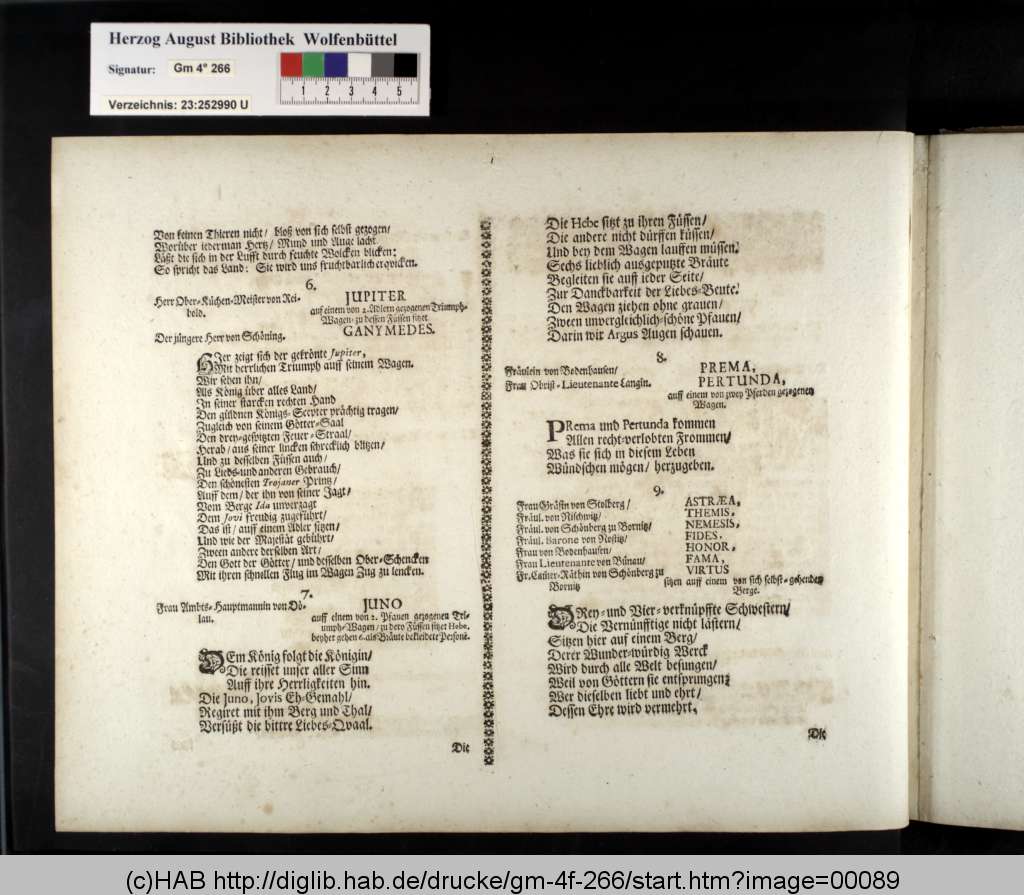 Herzog August Bibliothek Wolfenbüttel
Signatur: Gm 4° 266
1 2 3 4 5
Verzeichnis: 23:252990 U
Von keinen Thieren nicht/ bloß von sich selbst gezogen/
Worüber iederman Hertz/ Mund und Auge lacht
Läßt die sich in der Lufft durch feuchte Wolcken blicken:
So spricht das Land: Sie wird uns fruchtbarlich erqvicken.
6.
Herr Ober-Küchen-Meister von Rei-
bold.
JUPITER
auf einem von 2. Adlern gezogenen Triumph-
Wagen/ zu dessen Füssen sitzet
Der jüngere Herr von Schöning.
GANYMEDES.
HIer zeigt sich der gekrönte Jupiter,
Mit herrlichen Triumph auff seinem Wagen.
Wir sehen ihn/
Als König über alles Land/
In seiner starcken rechten Hand
Den güldnen Königs-Scepter prächtig tragen/
Zugleich von seinem Götter-Saal
Den drey-gespitzten Feuer-Straal/
Herab/ aus seiner lincken schrecklich blitzen/
Und zu desselben Füssen auch/
Zu Liebs- und anderen Gebrauch/
Den schönesten Trojaner Printz/
Auff dem/ der ihn von seiner Jagt/
Vom Berge Ida unverzagt
Dem Jovi freudig zugeführt/
Das ist/ auff einem Adler sitzen/
Und wie der Majestät gebührt/
Zween andere derselben Art/
Den Gott der Götter/ und desselben Ober-Schencken
Mit ihren schnellen Flug im Wagen Zug zu lencken.
7.
Frau Ambts-Hauptmannin von Dö-
lau.
JUNO
auff einem von 2. Pfauen gezogenen Tri-
umph-Wagen/ zu dero Füssen sitzet Hebe,
beyher gehen 6. als Bräute bekleidete Personē.
DEm König folgt die Königin/
Die reisset unser aller Sinn
Auff ihre Herrligkeiten hin.
Die Juno, Jovis Eh-Gemahl/
Regiret mit ihm Berg und Thal/
Versüßt die bittre Liebes-Qvaal.
Die
Die Hebe sitzt zu ihren Füssen/
Die andere nicht dürffen küssen/
Und bey dem Wagen lauffen müssen.
Sechs lieblich ausgeputzte Bräute
Begleiten sie auff ieder Seite/
Zur Danckbarkeit der Liebes-Beute.
Den Wagen ziehen ohne grauen/
Zween unvergleichlich-schöne Pfauen/
Darin wir Argus Augen schauen.
8.
Fräulein von Bodenhausen/
PREMA,
Frau Obrist-Lieutenante Langin.
PERTUNDA,
auff einem von zwey Pferden gezogenen
Wagen.
PRema und Pertunda kommen
Allen recht-verlobten Frommen/
Was sie sich in diesem Leben
Wündschen mögen/ herzugeben.
9.
Frau Gräfin von Stolberg/ ASTRÆA,
Fräul. von Nischwitz/ THEMIS,
Fräul. von Schönberg zu Bornitz/ NEMESIS,
Fräul. Barone von Rostitz/ FIDES,
Frau von Bodenhausen/ HONOR,
Frau Lieutenante von Bünau/ FAMA,
Fr. Cam̃er-Räthin von Schönberg zu VIRTUS
Bornitz
sitzen auff einem von sich selbst-gehenden
Berge.
DRey- und Vier-verknüpffte Schwestern/
Die Vernünfftige nicht lästern/
Sitzen hier auf einem Berg/
Derer Wunder-würdig Werck
Wird durch alle Welt besungen/
Weil von Göttern sie entsprungen:
Wer dieselben liebt und ehrt/
Dessen Ehre wird vermehrt.
Die
(c)HAB http://diglib.hab.de/drucke/gm-4f-266/start.htm?image=00089